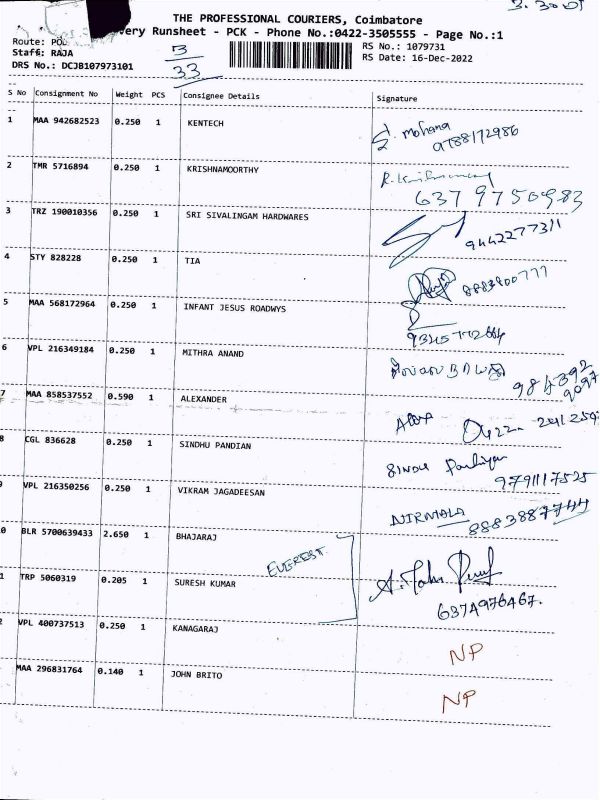 3. 30
THE PROFESSIONAL COURIERS, Coimbatore
ery Runsheet - PCK - Phone No.:0422-3505555 - Page No.:1
Route: POL
Staff: RAJA
DRS No.: DCJB107973101
3
33
RS No.: 1079731
RS Date: 16-Dec-2022
S No Consignment No Weight PCS Consignee Details Signature
1 MAA 942682523 0.250 1 KENTECH S. mohana 9788172986
2 TMR 5716894 0.250 1 KRISHNAMOORTHY 637 9750983
3 TRZ 190010356 0.250 1 SRI SIVALINGAM HARDWARES 9442277311
4 STY 828228 0.250 1 TIA 8883800777
5 MAA 568172964 0.250 1 INFANT JESUS ROADWYS
6 VPL 216349184 0.250 1 MITHRA ANAND 984392
7 MAA 858537552 0.590 1 ALEXANDER 0422-
8 CGL 836628 0.250 1 SINDHU PANDIAN Sindu Pandiyan 9791117525
9 VPL 216350256 0.250 1 VIKRAM JAGADEESAN NIRMALA 8883887744
0 BLR 5700639433 2.650 1 BHAJARAJ EVEREST
1 TRP 5060319 0.205 1 SURESH KUMAR 6374976467.
2 VPL 400737513 0.250 1 KANAGARAJ NP
MAA 296831764 0.140 1 JOHN BRITO NP